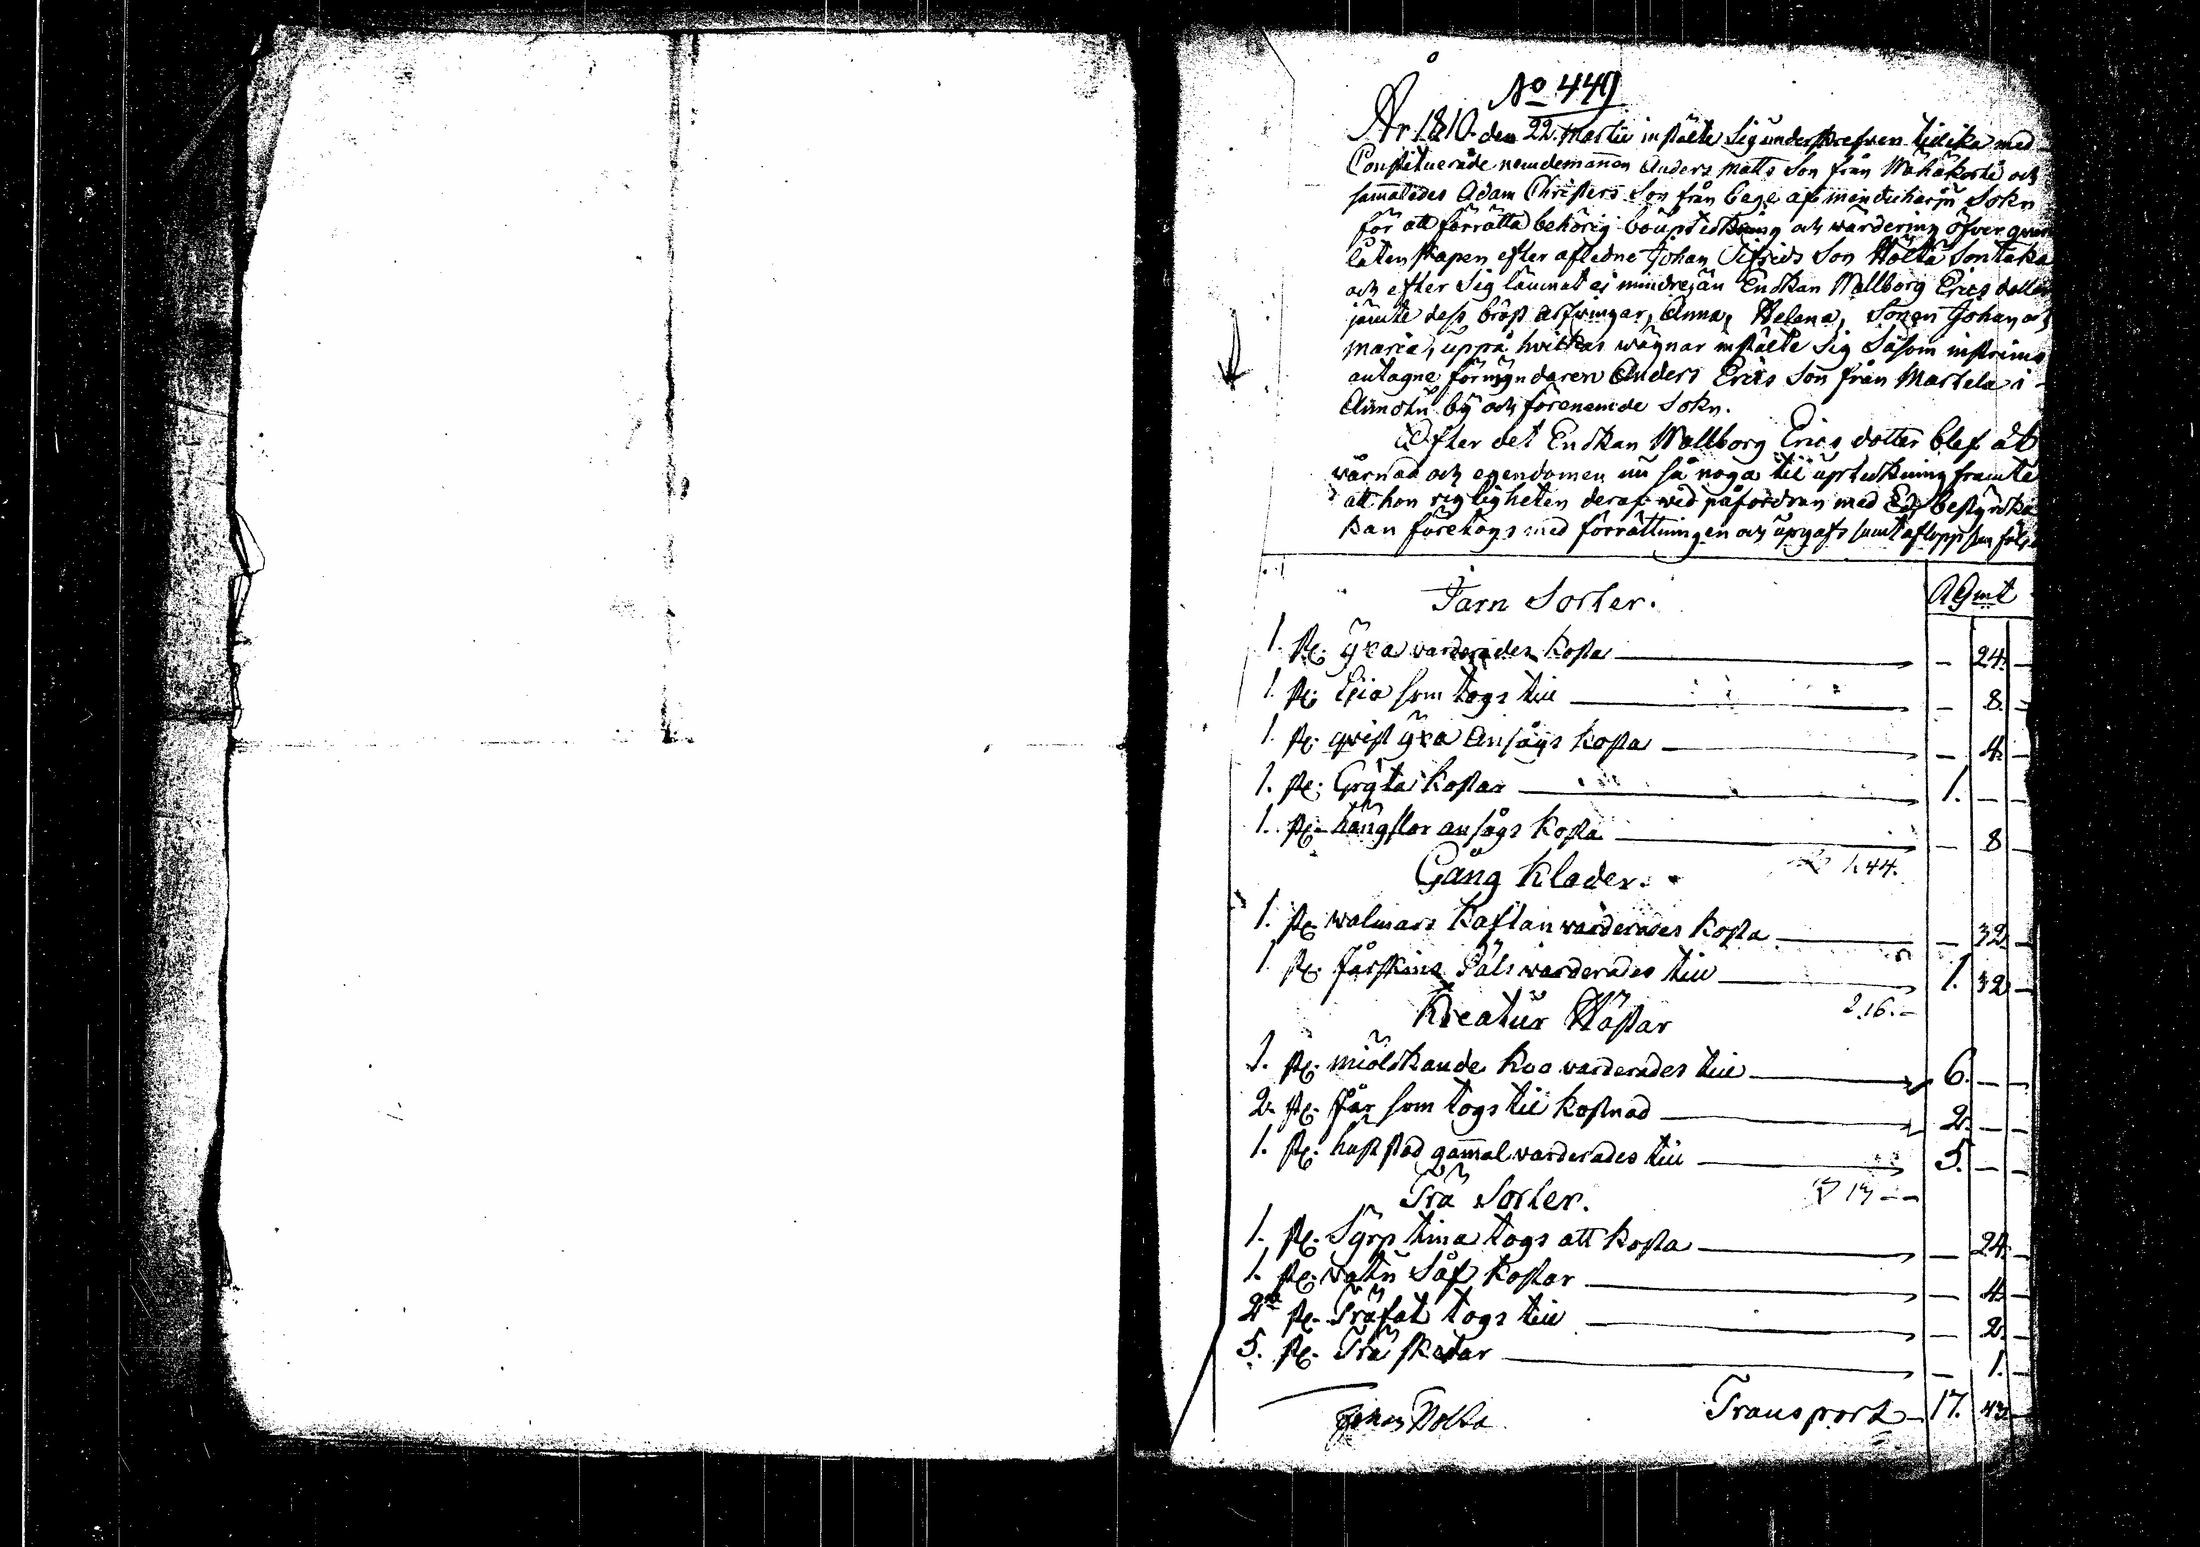 No 449
År 1810. den 22. Martii instälte Sig underskrefven tillika med
Constituerade nemdemannen Anders Matts Son från Wähäkorte och
sammaledes Adam Christers Son från af Mändüharju Sokn
för att förrätta behörig boüptekning och värdering öfver qvar
låtenskapen efter afledne Johan Sifrids Son Hölta
och efter Sig lämnat ej mindre än Enckan Wallborg Erics dotter
jämte dess bröst arfvingar, Anna, Helena, Sonen Johan och
Maria, uppå hvilkas vägnar instälte Sig Såsom
antagne förmyndaren Anders Erics Son från Martela i
by och förenemde Sokn.
Efter det Enckan Wallborg Erics dotter blef åt
varnad och egendomen nu så noga til uptekning framte
att hon rigtigheten deraf wid påfordran med Ed bestyrcka
kan företogs med förrättningen och upgafs samt aflopp som följer
Jarn Sorter.
1. st. yxa varderades kosta — 24. —
1. st. Lia som togs till — 8. —
1. st. qvist yxa Ansågs kosta — 4. —
1. st. Gryta kostar 1. — —
1. st. hänglor ansågs kosta — 8 —
1.44.
Gång Klader.
1. st. walmars Kaftan varderades kosta — 32 —
1. st. fårskins Päls warderades till 1. 32 —
2.16. —
Kreatür Hästar
1. st. miölckande koo varderades till 6. — —
2. st. får som togs til kostnad 2. — —
1. st. häst stod gammal varderades till 5. — —
13 — —
Trä Sorter.
1. st. Syrp tina togs att kosta — 24. —
1. st. vatn Såf kostar — 4. —
2 st. Träfat togs till — 2. —
5. st. Trä skedar — 1. —
Johan Holta
Transport 17. 43. —